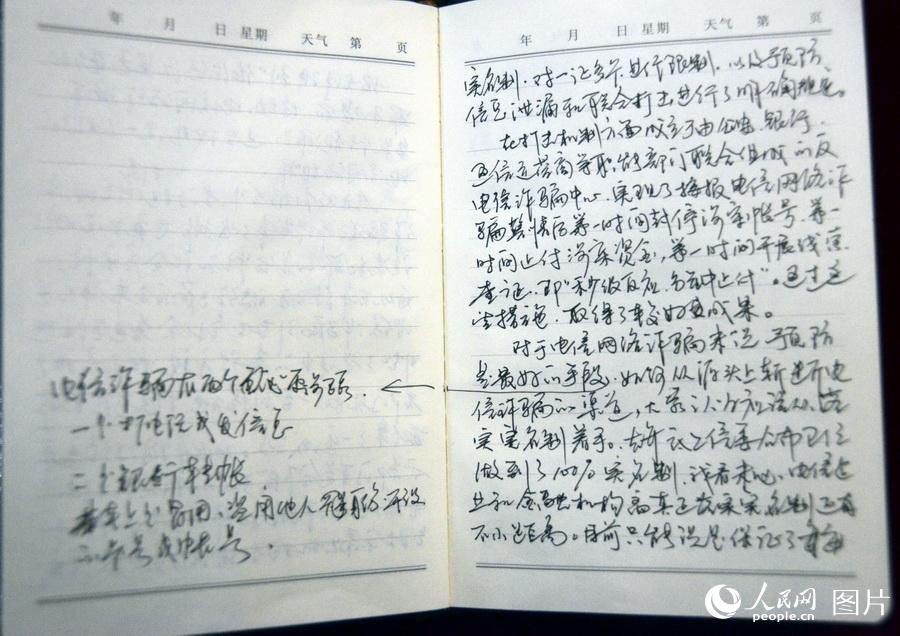 年 月 日 星期 天气 第 页
电信诈骗有两个重点要害弱
一个打电话或发信息
二个银行转帐
基本上是冒用、盗用他人身份开设
的卡号或帐号。
年 月 日 星期 天气 第 页
实名制,对一证多卡进行限制,以及预防
信息泄漏和联合打击进行了明确规定。
在打击机制方面成立了由公安、银行、
通信运营商等职能部门联合组成的反
电信诈骗中心,实现了接报电信网络诈
骗警情后第一时间封停涉案帐号,第一
时间止付涉案资金,第一时间开展线索
查证,即"秒级反应、分钟止付"。通过这
些措施,取得了较好的成果。
对于电信网络诈骗来说,预防
是最好的手段,如何从源头上斩断电
信诈骗的渠道,大家认为应该从落
实实名制着手。去年
做到了100%实名制,我看未必,电信企
业和金融机构离真正落实实名制还有
不小距离。目前只能说是保证了
人民网 图片
people.cn